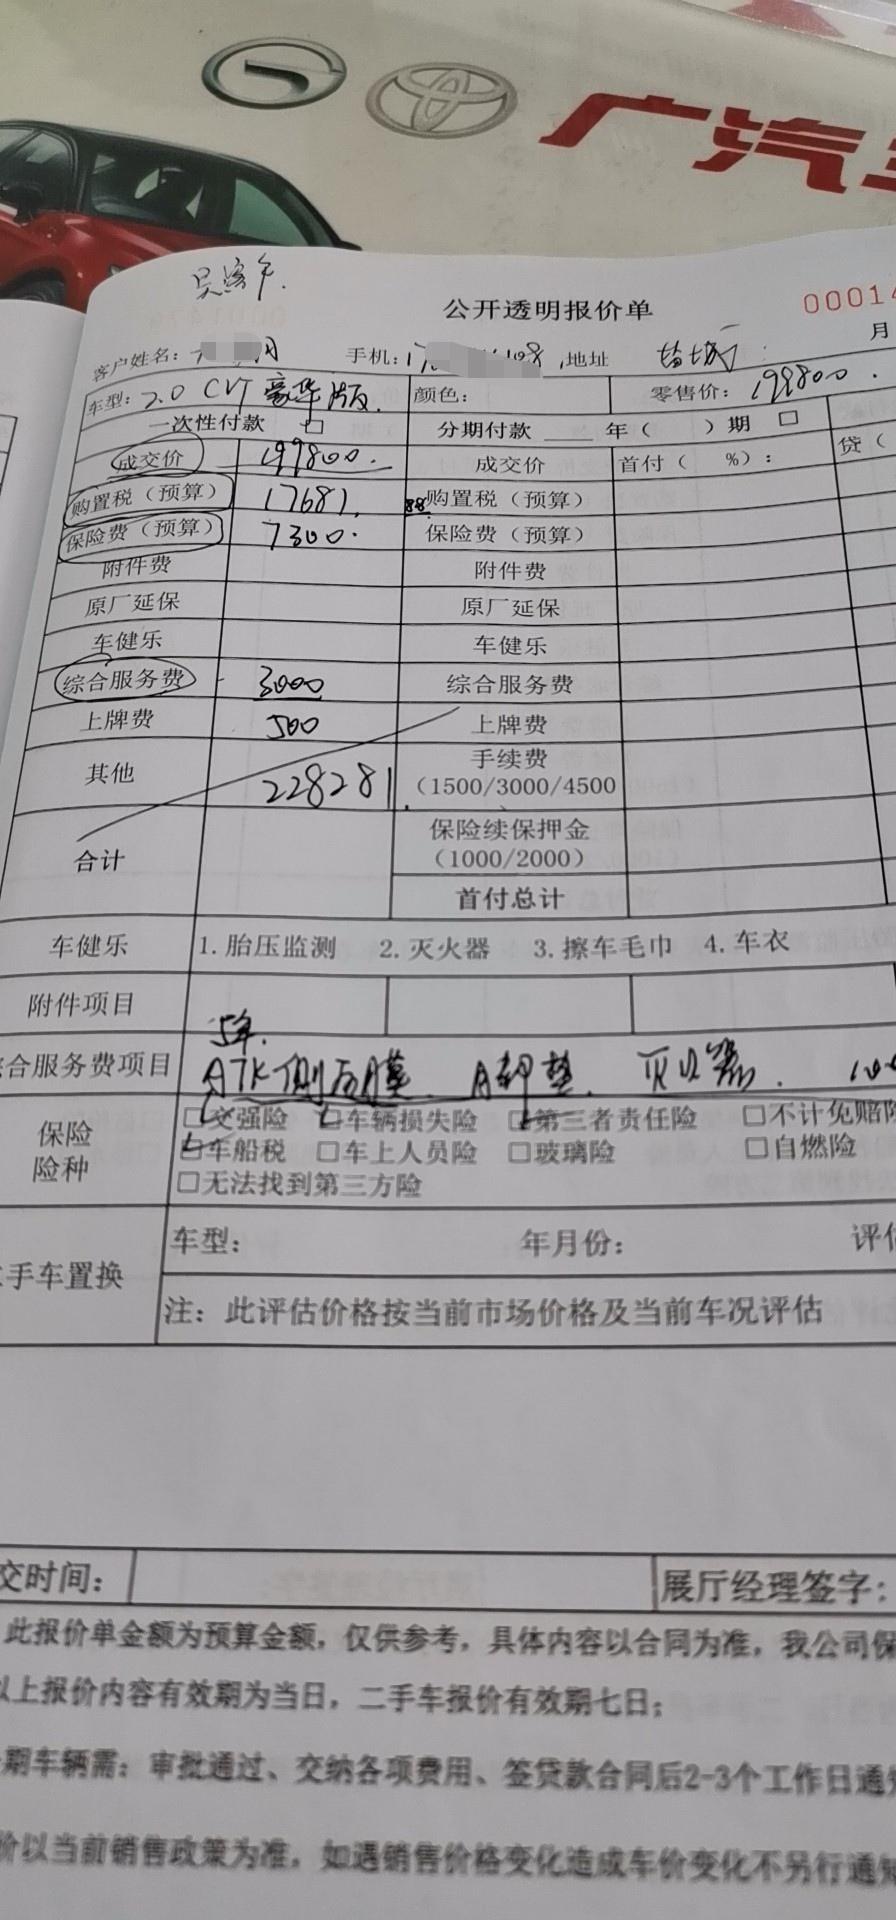 广汽
公开透明报价单
00014
月
客户姓名： 手机：17 108 ,地址
车型：2.0 CVT 豪华版. 颜色： 零售价：199800.
一次性付款 □ 分期付款 年（ ）期 □
成交价 199800. 成交价 首付（ %）： 贷（
购置税（预算） 17681. 购置税（预算）
保险费（预算） 7300. 保险费（预算）
附件费 附件费
原厂延保 原厂延保
车健乐 车健乐
综合服务费 3000 综合服务费
上牌费 500 上牌费
其他 228281. 手续费
（1500/3000/4500
合计 保险续保押金
（1000/2000）
首付总计
车健乐 1.胎压监测 2.灭火器 3.擦车毛巾 4.车衣
附件项目
5年.
合服务费项目 ATK侧后膜. A脚垫. 灭火器.
保险 □交强险 □车辆损失险 □第三者责任险 □不计免赔险
险种 □车船税 □车上人员险 □玻璃险 □自燃险
□无法找到第三方险
手车置换 车型： 年月份： 评估
注：此评估价格按当前市场价格及当前车况评估
交时间： 展厅经理签字：
此报价单金额为预算金额，仅供参考，具体内容以合同为准，我公司保
以上报价内容有效期为当日，二手车报价有效期七日；
期车辆需：审批通过、交纳各项费用、签贷款合同后2-3个工作日通知
价以当前销售政策为准，如遇销售价格变化造成车价变化不另行通知